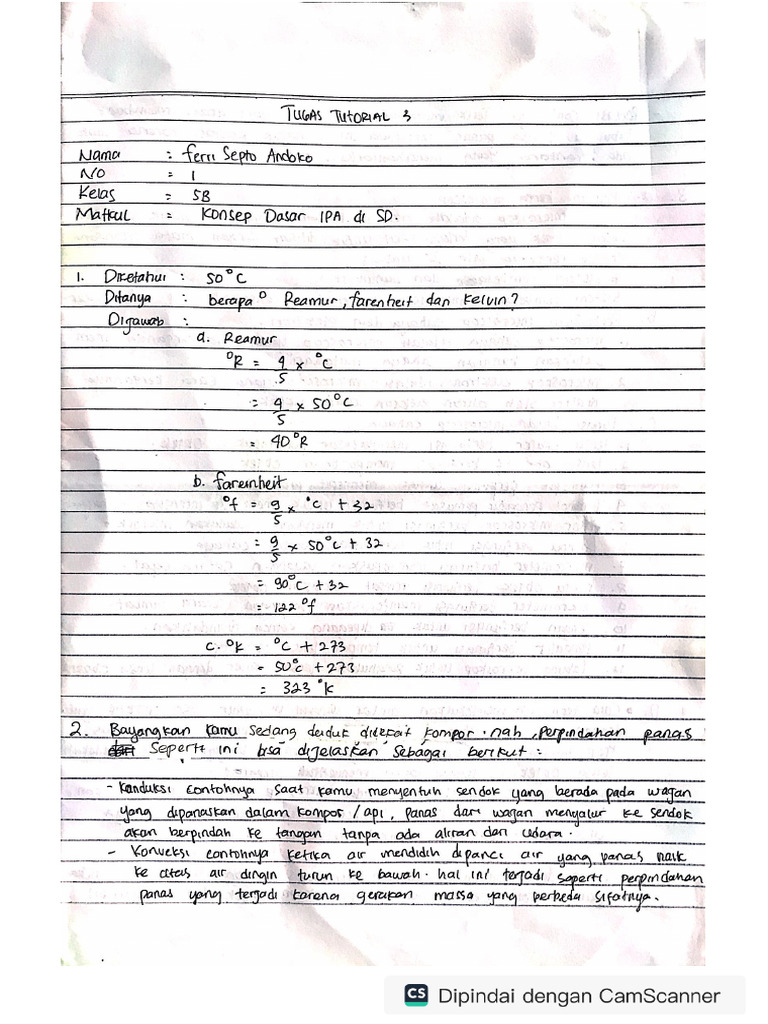 TUGAS TUTORIAL 3
Nama : Ferri Septo Andoko
NO = 1
Kelas = 5B
Matkul = Konsep Dasar IPA di SD.
1. Diketahui : 50°C
Ditanya : berapa ° Reamur, farenheit dan Kelvin?
Dijawab :
a. Reamur
°R = 4/5 x °C
= 4/5 x 50°C
= 40°R
b. fareinheit
°f = 9/5 x °C + 32
= 9/5 x 50°C + 32
= 90°C + 32
= 122°f
c. °K = °C + 273
= 50°C + 273
= 323 °K
2. Bayangkan kamu sedang duduk didekat kompor. nah, perpindahan panas
seperti ini bisa dijelaskan sebagai berikut :
- Konduksi contohnya saat kamu menyentuh sendok yang berada pada wajan
yang dipanaskan dalam kompor / api, panas dari wajan menyalur ke sendok
akan berpindah ke tangan tanpa ada aliran dari udara.
- Konveksi contohnya ketika air mendidih dipanci air yang panas naik
ke atas air dingin turun ke bawah. hal ini terjadi seperti perpindahan
panas yang terjadi karena gerakan massa yang berbeda sifatnya.
CS Dipindai dengan CamScanner